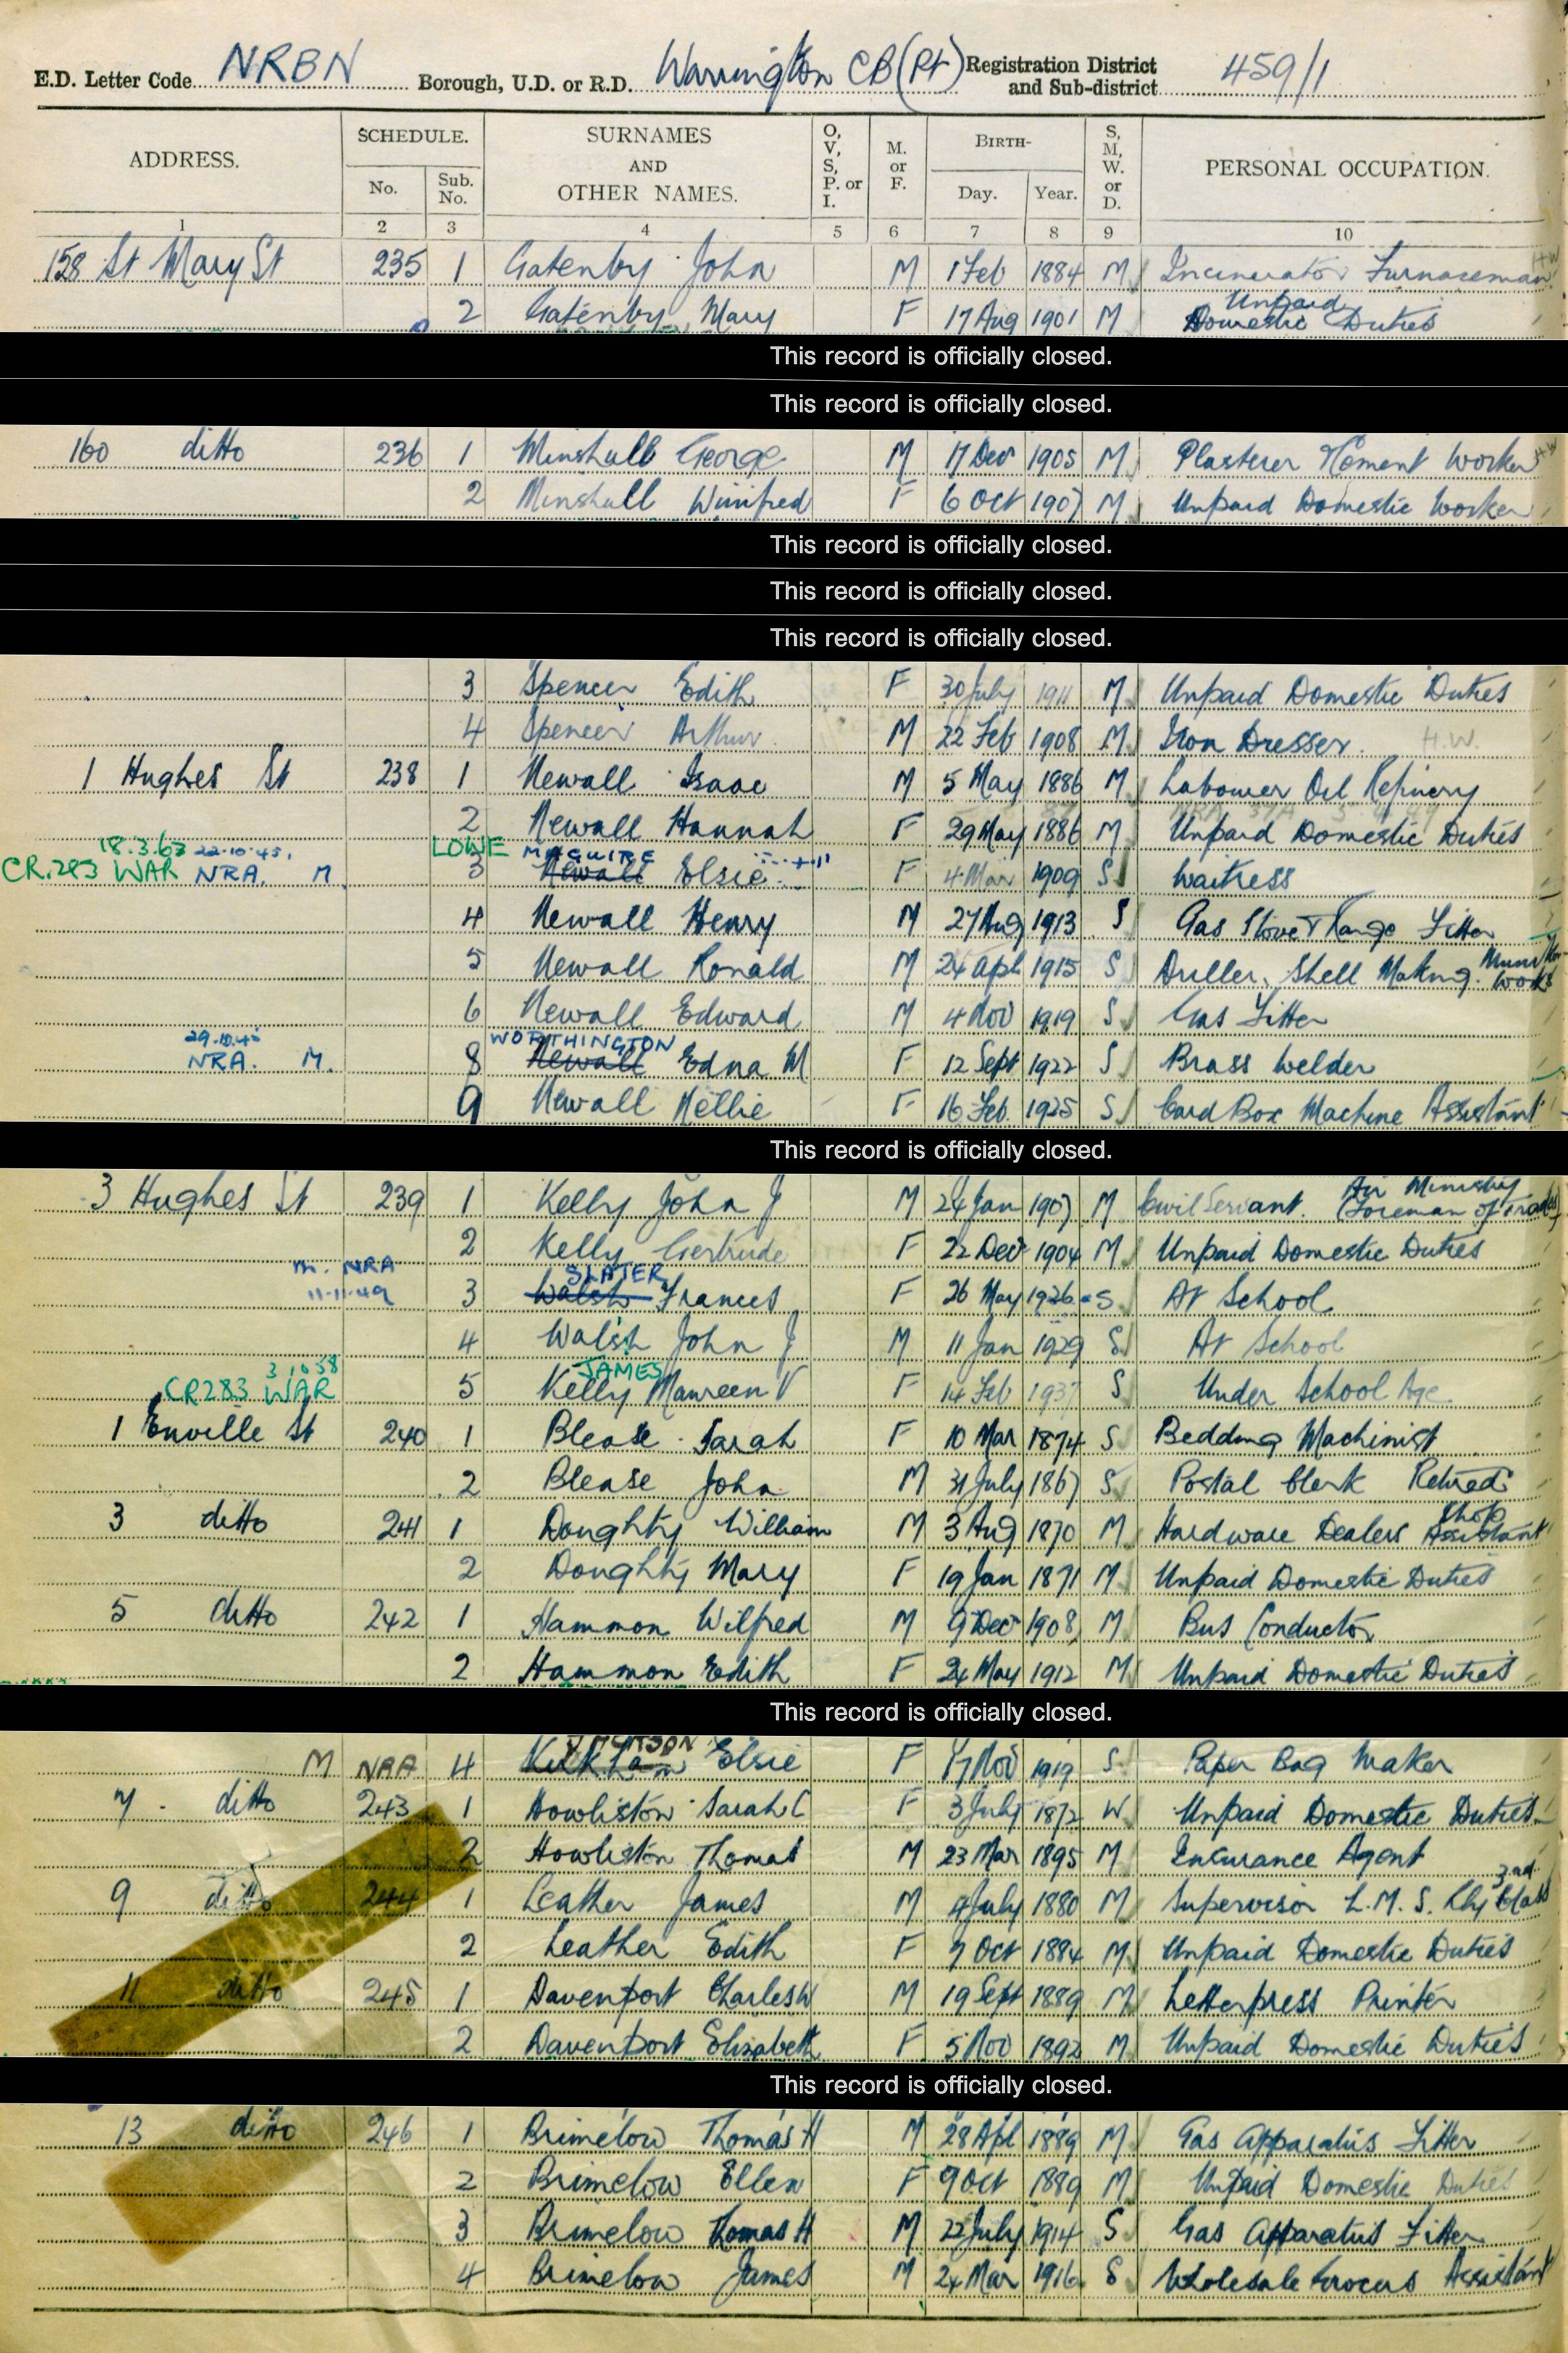 E.D. Letter Code NRBN Borough, U.D. or R.D. Warrington CB (Pt) Registration District and Sub-district 459/1
ADDRESS. SCHEDULE. No. Sub. No. SURNAMES AND OTHER NAMES. O, V, S, P. or I. M. or F. BIRTH- Day. Year. S, M, W. or D. PERSONAL OCCUPATION.
1 2 3 4 5 6 7 8 9 10
158 St Mary St 235 1 Gatenby John M 1 Feb 1884 M Incinerator Furnaceman H W
2 Gatenby Mary F 17 Aug 1901 M Unpaid Domestic Duties
This record is officially closed.
This record is officially closed.
160 ditto 236 1 Minshull George M 17 Dec 1905 M Plasterer Cement Worker H W
2 Minshull Winifred F 6 Oct 1907 M Unpaid Domestic Worker
This record is officially closed.
This record is officially closed.
This record is officially closed.
3 Spencer Edith F 30 July 1911 M Unpaid Domestic Duties
4 Spencer Arthur M 22 Feb 1908 M Iron Dresser. H.W.
1 Hughes St 238 1 Newall Isaac M 5 May 1886 M Labourer Oil Refinery
2 Newall Hannah F 29 May 1886 M Unpaid Domestic Duties
18.3.63 22.10.45. LOWE MAGUIRE
CR.283 WAR NRA. M 3 Newall Elsie F 4 Mar 1909 S Waitress
4 Newall Henry M 27 Aug 1913 S Gas Stove & Range Fitter
5 Newall Ronald M 24 Apl 1915 S Driller, Shell Making. Munition Works
6 Newall Edward M 4 Nov 1919 S Gas Fitter
29.10.45 WORTHINGTON
NRA. M. 8 Newall Edna M F 12 Sept 1922 S Brass Welder
9 Newall Nellie F 16 Feb. 1925 S Card Box Machine Assistant
This record is officially closed.
3 Hughes St 239 1 Kelly John J M 24 Jan 1907 M Civil Servant. Air Ministry (Foreman of Trades)
2 Kelly Gertrude F 22 Dec 1904 M Unpaid Domestic Duties
m. NRA SLATER
11.11.49 3 Walsh Frances F 26 May 1926 S At School
4 Walsh John J M 11 Jan 1929 S At School
JAMES
CR283 WAR 5 Kelly Maureen V F 14 Feb 1937 S Under School Age
1 Enville St 240 1 Blease Sarah F 10 Mar 1874 S Bedding Machinist
2 Blease John M 31 July 1867 S Postal Clerk Retired
3 ditto 241 1 Doughty William M 3 Aug 1870 M Hardware Dealers Shop Assistant
2 Doughty Mary F 19 Jan 1871 M Unpaid Domestic Duties
5 ditto 242 1 Hammon Wilfred M 9 Dec 1908 M Bus Conductor
2 Hammon Edith F 24 May 1912 M Unpaid Domestic Duties
This record is officially closed.
JACKSON
M NRA 4 Kirkham Elsie F 17 Nov 1919 S Paper Bag Maker
7 ditto 243 1 Howliston Sarah C F 3 July 1872 W Unpaid Domestic Duties
2 Howliston Thomas M 23 Mar 1895 M Insurance Agent
9 ditto 244 1 Leather James M 4 July 1880 M Supervisor L.M.S. Rly 3rd Class
2 Leather Edith F 7 Oct 1884 M Unpaid Domestic Duties
11 ditto 245 1 Davenport Charles W M 19 Sept 1889 M Letterpress Printer
2 Davenport Elizabeth F 5 Nov 1892 M Unpaid Domestic Duties
This record is officially closed.
13 ditto 246 1 Brimelow Thomas H M 28 Apl 1889 M Gas Apparatus Fitter
2 Brimelow Ellen F 9 Oct 1889 M Unpaid Domestic Duties
3 Brimelow Thomas H M 22 July 1914 S Gas Apparatus Fitter
4 Brimelow James M 24 Mar 1916 S Wholesale Grocers Assistant